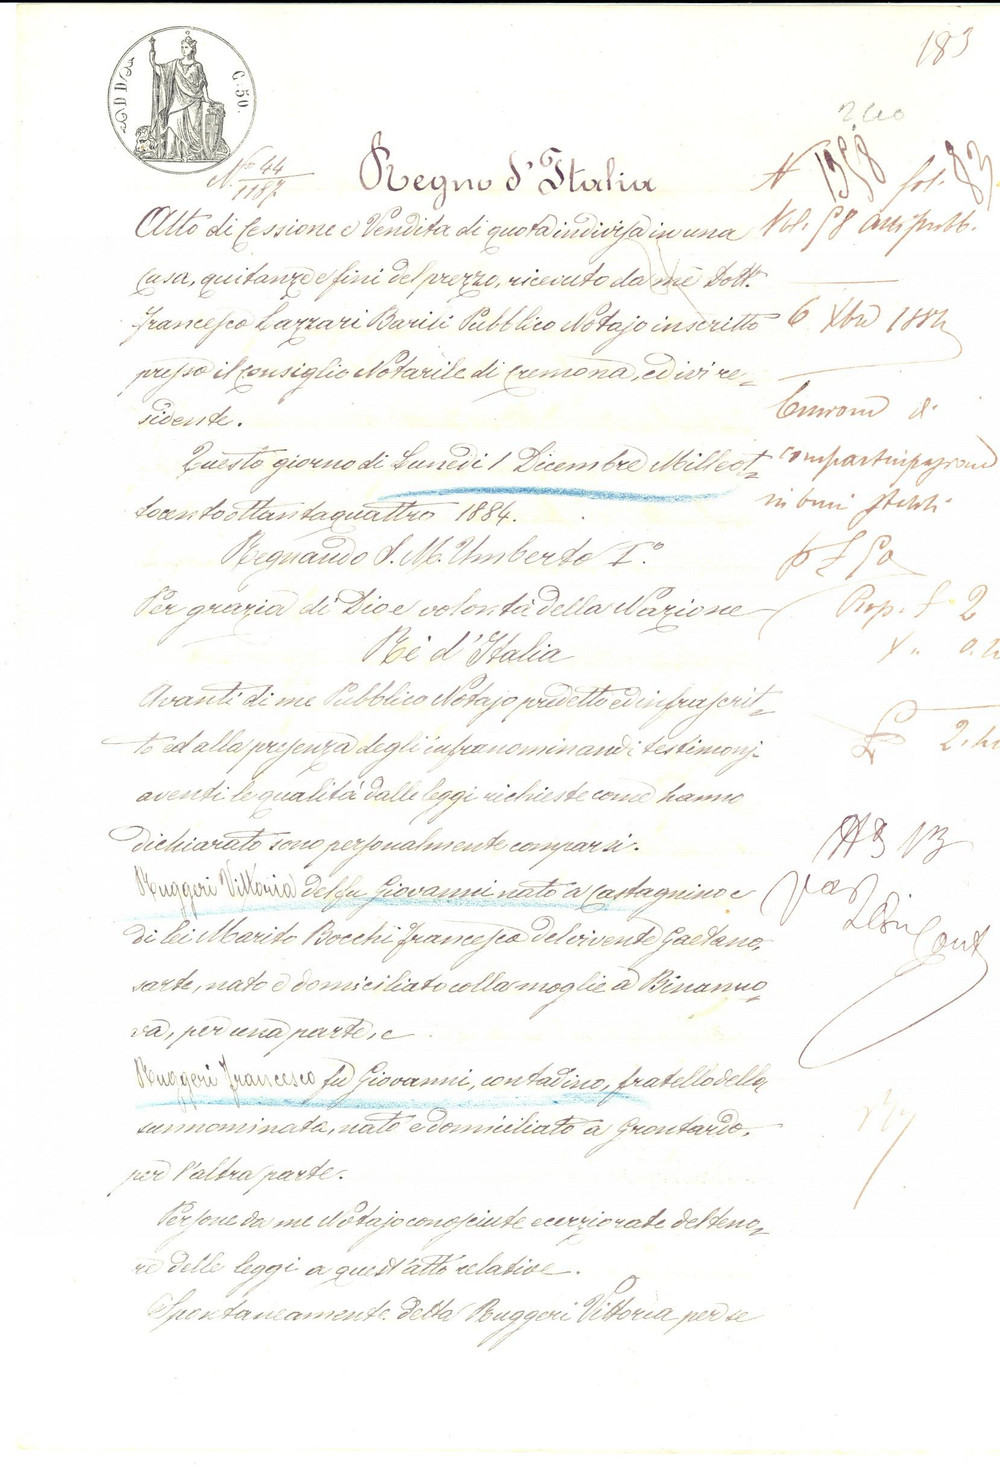 183
C. 50.
N.° 44
1187
Regno d'Italia
N 1958 fol. 83
Atto di Cessione e Vendita di quota indivisa in una
Vol. 58 atti pubb.
casa, quitanze e fini del prezzo, ricevuto da me Dott.
Francesco Lazzari Barili Pubblico Notajo inscritto
6 Xbre 1884
presso il Consiglio Notarile di Cremona, ed ivi re-
sidente.
Questo giorno di Lunedì 1 Dicembre Milleot-
tocentottantaquattro 1884.
Regnando S. M. Umberto I.°
Per grazia di Dio e volontà della Nazione
Rè d'Italia
Prop. £ 2
Avanti di me Pubblico Notajo predetto ed infrascrit-
to ed alla presenza degli infranominandi testimonj
aventi le qualità dalle leggi richieste come hanno
dichiarato sono personalmente comparsi.
Ruggeri Vittoria del fu Giovanni nato a Castagnino e
di lei Marito Bocchi Francesco del vivente Gaetano,
sarte, nato e domiciliato colla moglie a Binanuo-
va, per una parte, e
Ruggeri Francesco fu Giovanni, contadino, fratello della
sunnominata, nato e domiciliato a Grontardo,
per l'altra parte.
Persone da me Notajo conosciute e cerziorate del teno-
re delle leggi a quest'atto relative.
Spontaneamente detta Ruggeri Vittoria per se